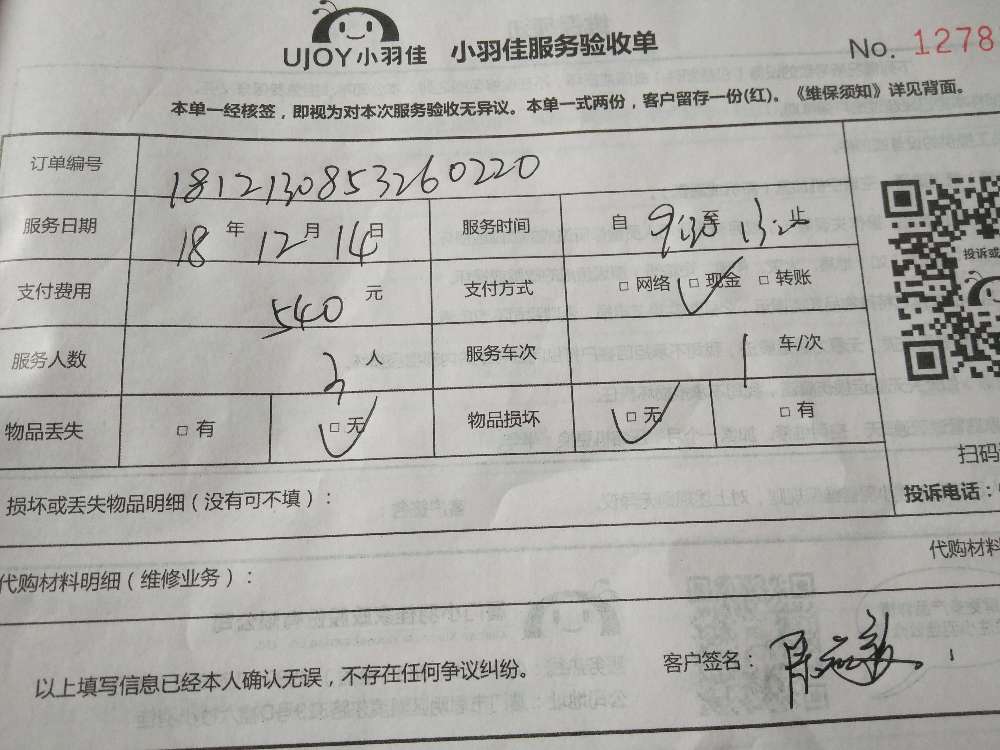 UJOY小羽佳 小羽佳服务验收单 No. 1278
本单一经核签，即视为对本次服务验收无异议。本单一式两份，客户留存一份(红)。《维保须知》详见背面。
订单编号 181213085326 0220
服务日期 18 年 12 月 14 日 服务时间 自 9:30 至 13: 止
支付费用 540 元 支付方式 □ 网络 □ 现金 □ 转账
投诉或
服务人数 人 服务车次 1 车/次
物品丢失 □ 有 □ 无 物品损坏 □ 无 □ 有
扫码
损坏或丢失物品明细（没有可不填）：
投诉电话：
代购材料明细（维修业务）： 代购材料
以上填写信息已经本人确认无误，不存在任何争议纠纷。 客户签名：